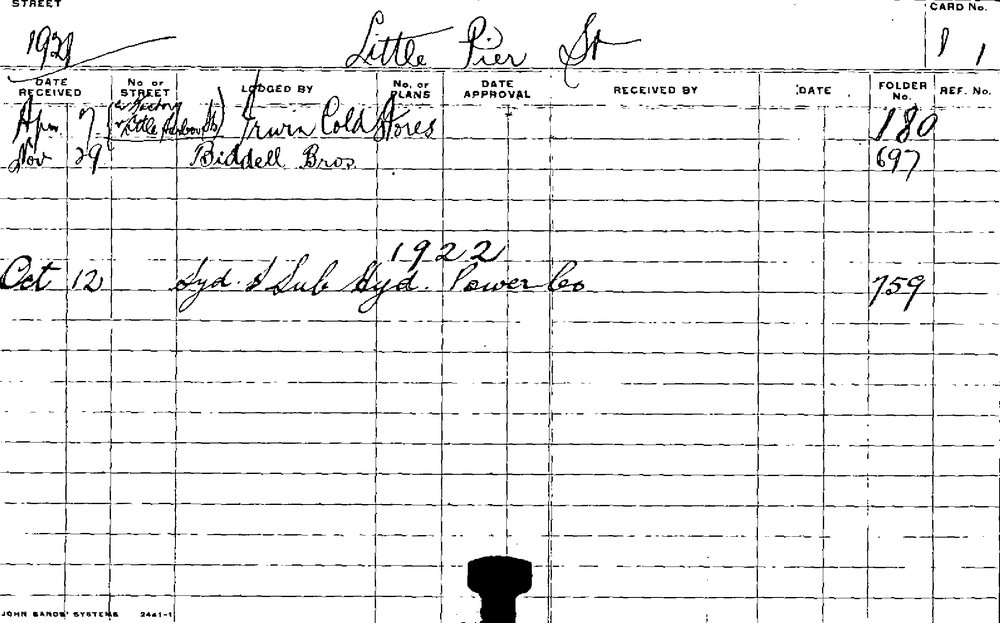 STREET
CARD No.
Little Pier St
1 1
DATE RECEIVED No. OF STREET LODGED BY No. OF PLANS DATE APPROVAL RECEIVED BY DATE FOLDER No. REF. No.
Apr 7 Little Harbour St) Irwin Cold Stores 180
Nov 29 Biddell Bros. 697
1922
Oct 12 Syd. & Sub Hyd. Power Co 759
JOHN SANDS' SYSTEMS 2441-1